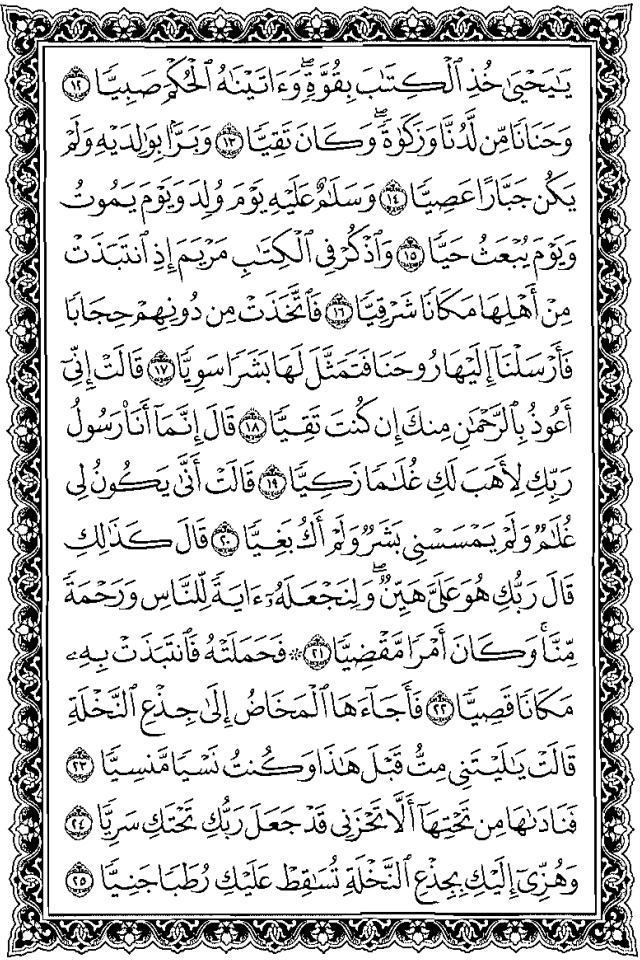 يَـٰيَحۡيَىٰ خُذِ ٱلۡكِتَـٰبَ بِقُوَّةٖۖ وَءَاتَيۡنَـٰهُ ٱلۡحُكۡمَ صَبِيّٗا ١٢
وَحَنَانٗا مِّن لَّدُنَّا وَزَكَوٰةٗۖ وَكَانَ تَقِيّٗا ١٣ وَبَرَّۢا بِوَٰلِدَيۡهِ وَلَمۡ
يَكُن جَبَّارًا عَصِيّٗا ١٤ وَسَلَـٰمٌ عَلَيۡهِ يَوۡمَ وُلِدَ وَيَوۡمَ يَمُوتُ
وَيَوۡمَ يُبۡعَثُ حَيّٗا ١٥ وَٱذۡكُرۡ فِي ٱلۡكِتَـٰبِ مَرۡيَمَ إِذِ ٱنتَبَذَتۡ
مِنۡ أَهۡلِهَا مَكَانٗا شَرۡقِيّٗا ١٦ فَٱتَّخَذَتۡ مِن دُونِهِمۡ حِجَابٗا
فَأَرۡسَلۡنَآ إِلَيۡهَا رُوحَنَا فَتَمَثَّلَ لَهَا بَشَرٗا سَوِيّٗا ١٧ قَالَتۡ إِنِّيٓ
أَعُوذُ بِٱلرَّحۡمَـٰنِ مِنكَ إِن كُنتَ تَقِيّٗا ١٨ قَالَ إِنَّمَآ أَنَا۠ رَسُولُ
رَبِّكِ لِأَهَبَ لَكِ غُلَـٰمٗا زَكِيّٗا ١٩ قَالَتۡ أَنَّىٰ يَكُونُ لِي
غُلَـٰمٞ وَلَمۡ يَمۡسَسۡنِي بَشَرٞ وَلَمۡ أَكُ بَغِيّٗا ٢٠ قَالَ كَذَٰلِكِ
قَالَ رَبُّكِ هُوَ عَلَيَّ هَيِّنٞۖ وَلِنَجۡعَلَهُۥٓ ءَايَةٗ لِّلنَّاسِ وَرَحۡمَةٗ
مِّنَّاۚ وَكَانَ أَمۡرٗا مَّقۡضِيّٗا ٢١ ۞ فَحَمَلَتۡهُ فَٱنتَبَذَتۡ بِهِۦ
مَكَانٗا قَصِيّٗا ٢٢ فَأَجَآءَهَا ٱلۡمَخَاضُ إِلَىٰ جِذۡعِ ٱلنَّخۡلَةِ
قَالَتۡ يَـٰلَيۡتَنِي مِتُّ قَبۡلَ هَـٰذَا وَكُنتُ نَسۡيٗا مَّنسِيّٗا ٢٣
فَنَادَىٰهَا مِن تَحۡتِهَآ أَلَّا تَحۡزَنِي قَدۡ جَعَلَ رَبُّكِ تَحۡتَكِ سَرِيّٗا ٢٤
وَهُزِّيٓ إِلَيۡكِ بِجِذۡعِ ٱلنَّخۡلَةِ تُسَـٰقِطۡ عَلَيۡكِ رُطَبٗا جَنِيّٗا ٢٥